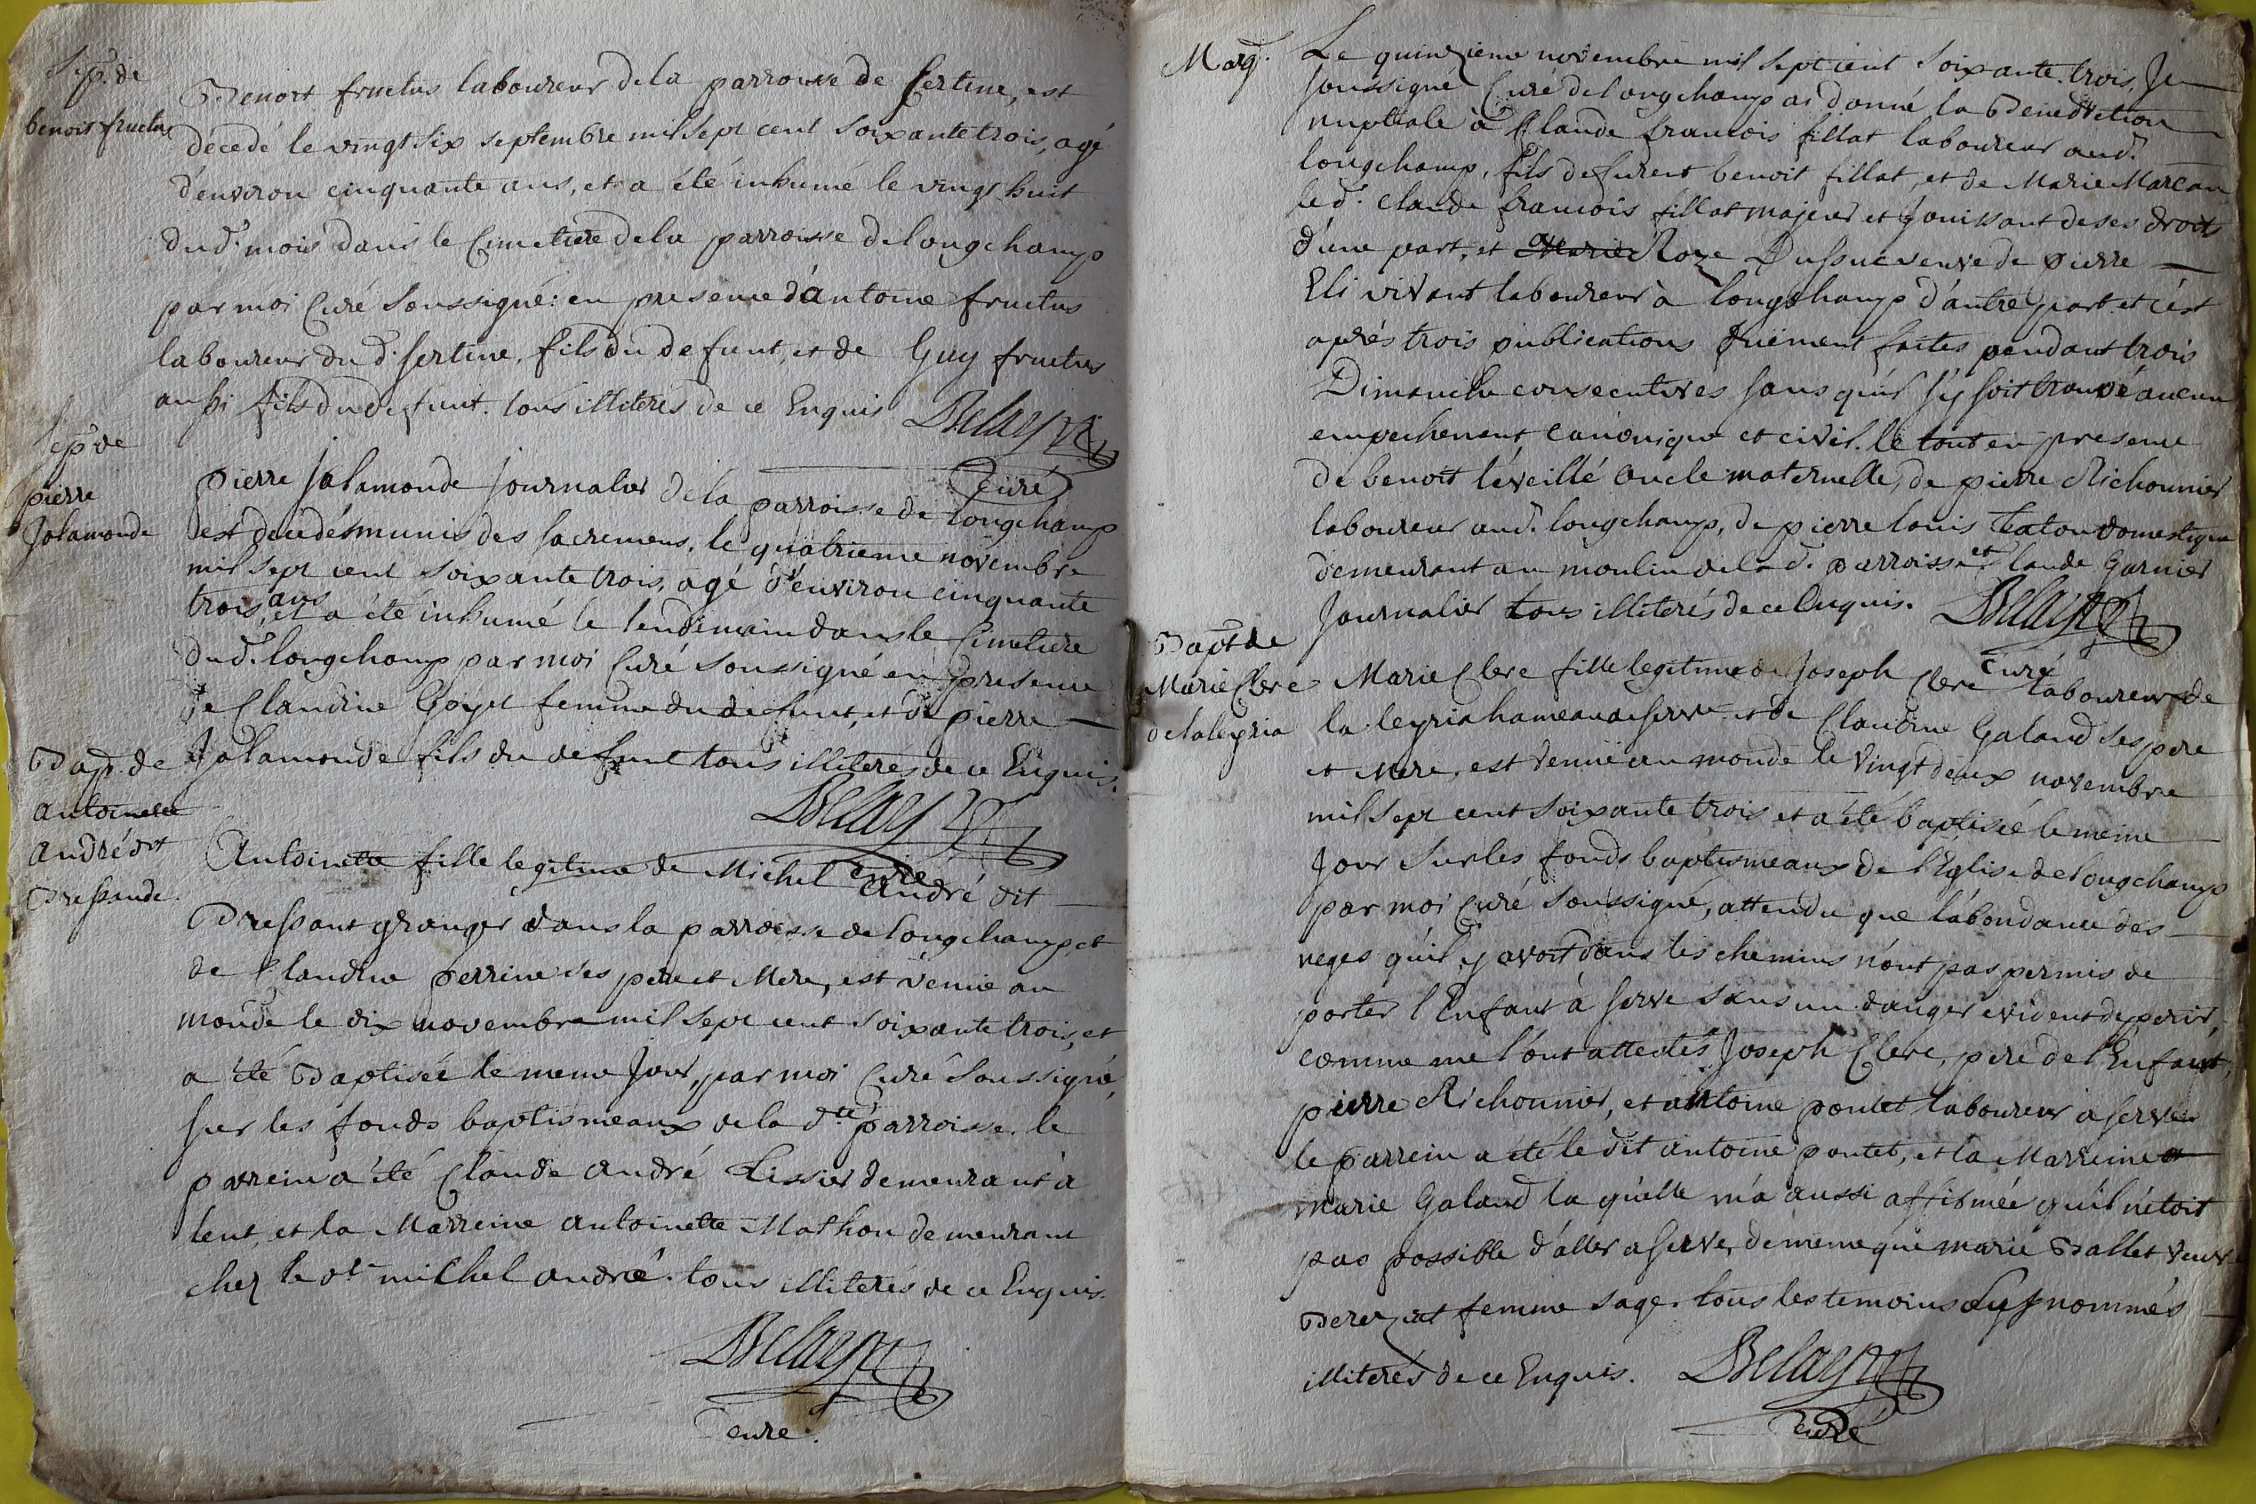 Sep. de
benoit fructus
Benoit fructus laboureur dela parroisse de Certine, est
décedé le vingt six septembre mil sept cent soixante trois, agé
d'environ cinquante ans, et a été inhumé le vingt huit
du d. mois dans le Cimetiere dela parroisse de longchamp
par moi Curé soussigné: en presence d'antoine fructus
laboureur du d. sertine, fils du defunt, et de Guy fructus
aussi fils du defunt. tous illiterés de ce Enquis Belay
Curé
Sep. de
pierre
Jalamonde
pierre Jalamonde Journalier dela parroisse de longchamp
est decedés munis des sacremens, le quatrieme novembre
mil sept cent soixante trois, agé d'environ cinquante
trois ans, et a été inhumé le lendemain dans le Cimetiere
du d. longchamp par moi Curé soussigné en presence
de Claudine Goyet femme du defunt, et de pierre
Jalamonde fils du defunt tous illiterés de ce Enquis.
Belay
Curé
Bap. de
antoinette
andré dit
Bressande.
Antoinette fille legitime de Michel andré dit
Bressant granger dans la parroisse de longchamp, et
de Claudine perrine ses pere et Mere, est venue au
monde le dix novembre mil sept cent soixante trois, et
a été Baptisée le meme Jour, par moi Curé soussigné,
sur les fonds baptismeaux de la dte parroisse. le
parrein a été Claude andré Tissier demeurant à
lent, et la Marreine antoinette Mathon demeurant
chez le dt michel andré. tous illiterés de ce Enquis.
Belay
Curé.
Marg.
Le quinzieme novembre mil sept cent soixante trois, Je
soussigné Curé de longchamp ai donné la Benediction
nuptiale à Claude francois fillat laboureur aud.
longchamp, fils de furent benoit fillat, et de Marie Marcan
le d. Claude francois fillat majeur et Jouissant de ses droits
d'une part, et Marie Roze Dussuc veuve de pierre
Eli vivant laboureur à longchamp d'autre part et c'est
après trois publications duëment faites pendant trois
Dimanche consecutives sans qu'il s'y soit trouvé aucun
empechement canonique et civil. le tout en presence
de benoit l'éveillé oncle maternelle, de pierre Richonnier
laboureur aud. longchamp, de pierre louis domestique
demeurant au moulin de la d. parroisse et Claude Garnier
Journalier tous illiterés de ce Enquis. Belay
Curé
Bapt de
Marie Clerc
de laleyria
Marie Clerc fille legitime de Joseph Clerc laboureur de
la leyria hameau de serve et de Claudine Galand ses pere
et Mere, est venue au monde le vingt deux novembre
mil sept cent soixante trois et a été baptisée le meme
Jour sur les fonds baptismeaux de l'Eglise de longchamp
par moi Curé soussigné, attendu que l'abondance des
neges qu'il y avoit dans les chemins n'ont pas permis de
porter l'Enfant à serve sans un danger evident de perir,
comme me l'ont attestés Joseph Clerc, pere de l'Enfant,
pierre Richonnier, et antoine pontet laboureur a serve
le parrein a été le dit antoine pontet, et la Marreine
marie Galand la qu'elle m'a aussi affirmée qu'il n'étoit
pas possible d'aller a serve, de meme que marie Ballet veuve
Berezat femme sage. tous les temoins susnommés
illiterés de ce Enquis. Belay
Curé